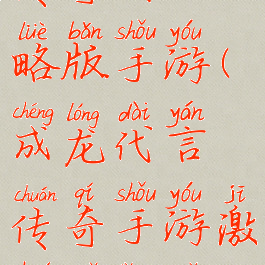 lüè bǎn shǒu yóu
略版手游(
chéng lóng dài yán
成龙代言
chuán qí shǒu yóu jī
传奇手游激